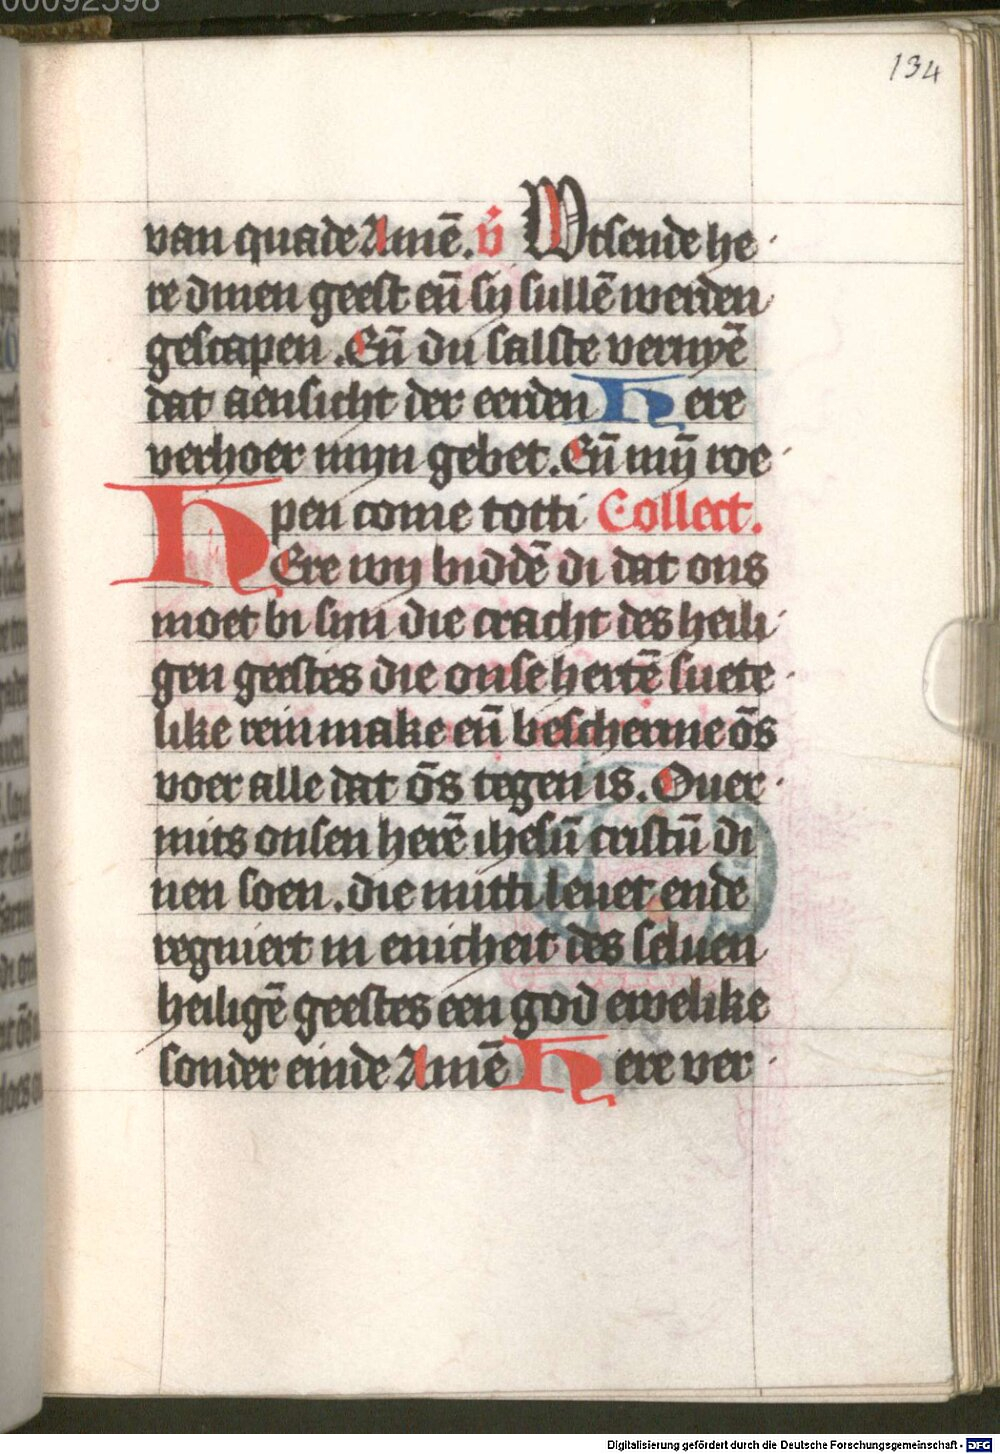 134
van quade Amē. v̄ Wtsende he
re dinen geest eñ sy sullē werden
gescapen. Eñ du salste vernyē
dat aensicht der eerden Here
verhoer myn gebet. Eñ mȳ roe
pen come totti Collect.
HEre wy biddē di dat ons
moet bi sijn die cracht des heili
gen geestes die onse hertē suete
like rein make eñ bescherme ōs
voer alle dat ōs tegen is. Ouer
mits onsen herē ihesū cristū di
nen soen. die mitti leuet ende
regniert in enicheit des seluen
heiligē geestes een god ewelike
sonder einde Amē Here ver
Digitalisierung gefördert durch die Deutsche Forschungsgemeinschaft - DFG